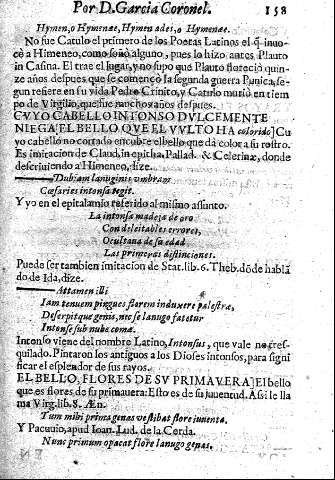 Por D. Garcia Coronel. 158
Hymen, o Hymenæe, Hymen ades, o Hymenæe.
No fue Catulo el primero de los Poetas Latinos el q̃ inuo-
cò a Himeneo, como soñò alguno, pues lo hizo antes Plauto
in Casina. El trae el lugar, y no supo que Plauto florecio quin-
ze años despues que se començò la segunda guerra Punica, se-
gun refiere en su vida Pedro Crinito, y Catulo murio en tiem
po de Virgilio, que fue muchos años despues.
CVYO CABELLO INTONSO DVLCEMENTE
NIEGA EL BELLO QUE EL VVLTO HA colorido] Cu
yo cabello no cortado encubre el bello que dà color a su rostro.
Es imitacion de Claud. in epitha. Pallad. & Celerinæ, donde
descriuiendo a Himeneo, dize.
Dubiam lanuginis vmbram
Cæsaries intonsa tegit.
Y yo en el epitalamio referido al mismo assunto.
La intonsa madeja de oro
Con deleitables errores,
Ocultaua de su edad
Las primeras distinciones.
Puede ser tambien imitacion de Stat. lib. 6. Theb. dõde hablã
do de Ida, dize.
Attamen illi
Iam tenuem pingues florem induxere palestræ,
Deserpitque genis, nec se lanugo fatetur
Intonsæ sub nube comæ.
Intonso viene del nombre Latino, Intonsus, que vale no tres-
quilado. Pintaron los antiguos a los Dioses intonsos, para signi
ficar el esplendor de sus rayos.
EL BELLO, FLORES DE SV PRIMAVERA] El bello
que es flores de su primauera: Esto es de su juuentud. Assi le lla
ma Virg. lib. 8. Æn.
Tum mihi prima genas vestibat flore iuuenta.
Y Pacuuio, apud Ioan. Lud. de la Cerda.
Nunc primum opacat flore lanugo genas.